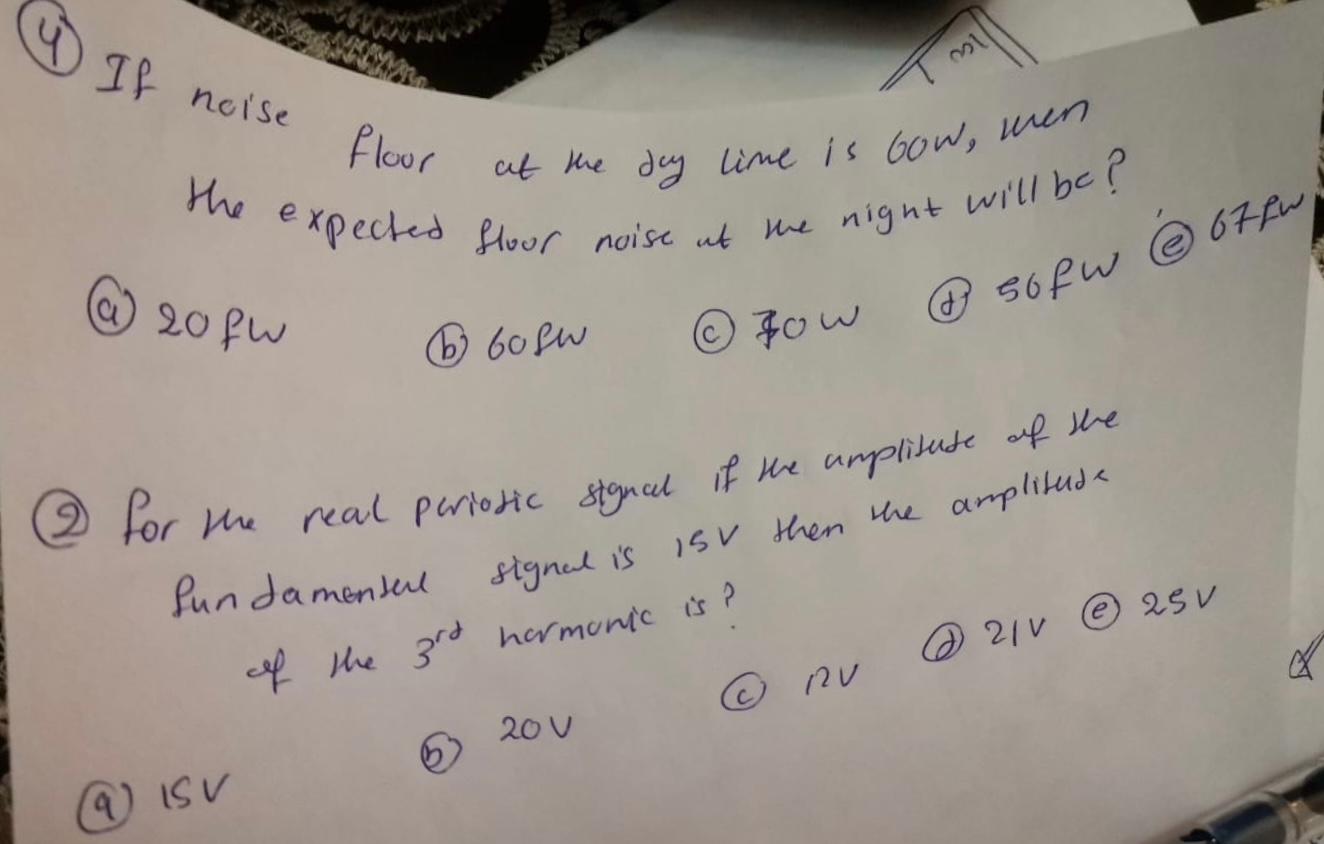 ④ If noise floor at the day time is 60W, then
the expected floor noise at the night will be?
ⓐ 20 fW ⓑ 60 fW ⓒ 70 W ⓓ 56 fW ⓔ 67 fW
② for the real periodic signal if the amplitude of the
fundamental signal is 15V then the amplitude
of the 3rd harmonic is?
ⓐ 15V ⓑ 20V ⓒ 12V ⓓ 21V ⓔ 25V